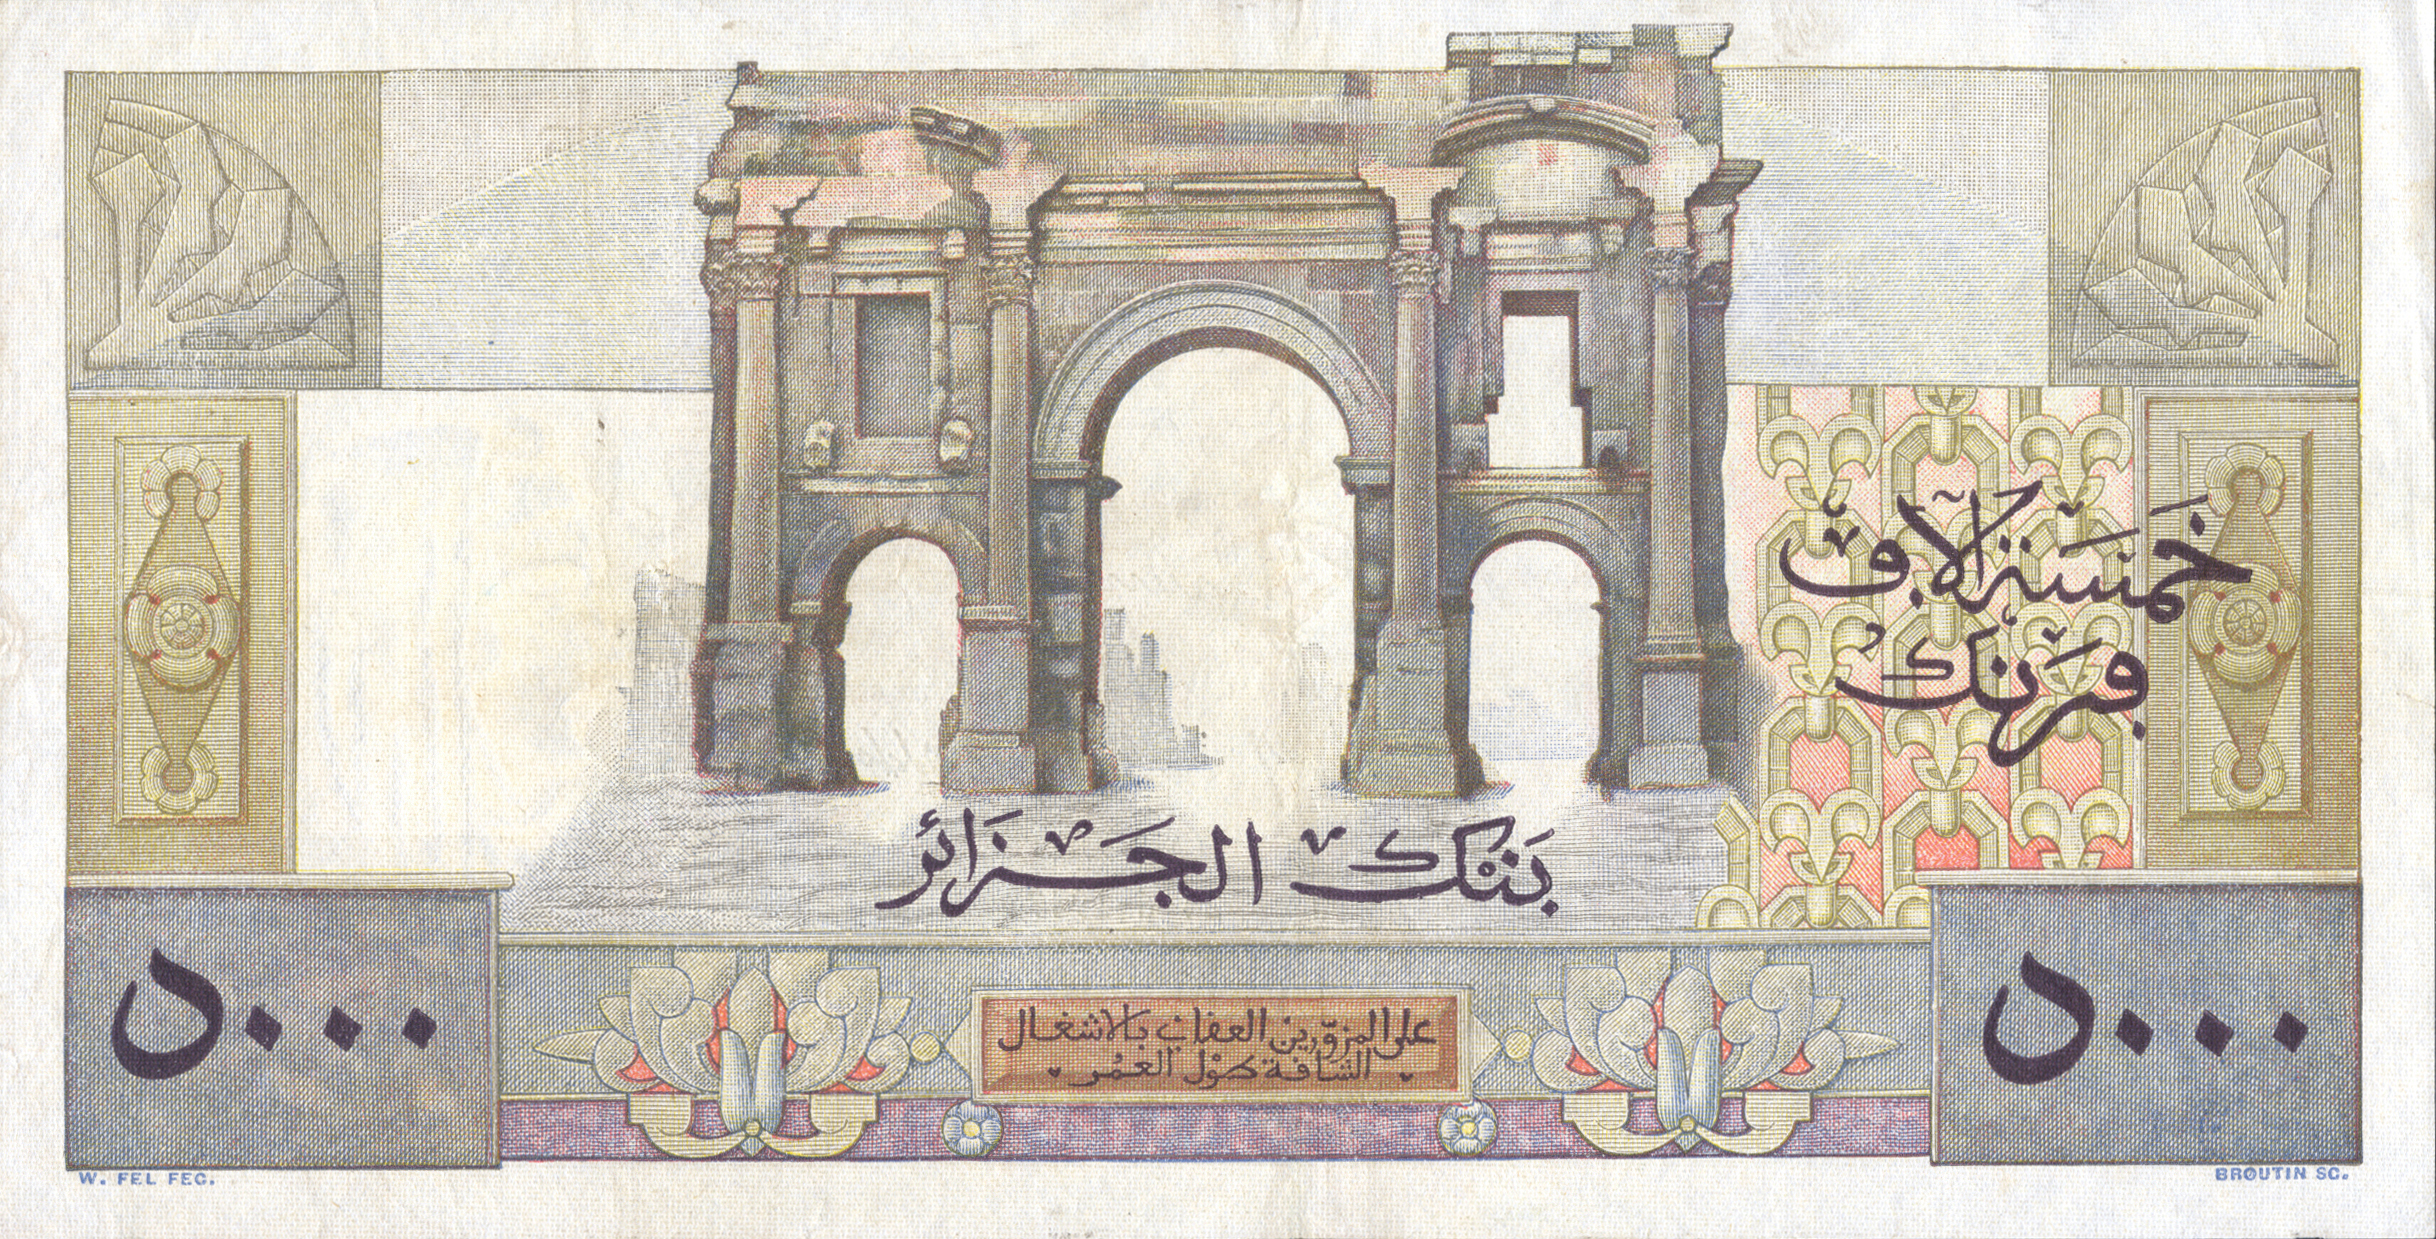 خَمْسَة آلاف
فرَنك
بَنْك الجَزَائر
٥٠٠٠
٥٠٠٠
على المزوّرين العقاب بالاشغال
الشاقة طول العمُر
W. FEL FEC.
BROUTIN SC.